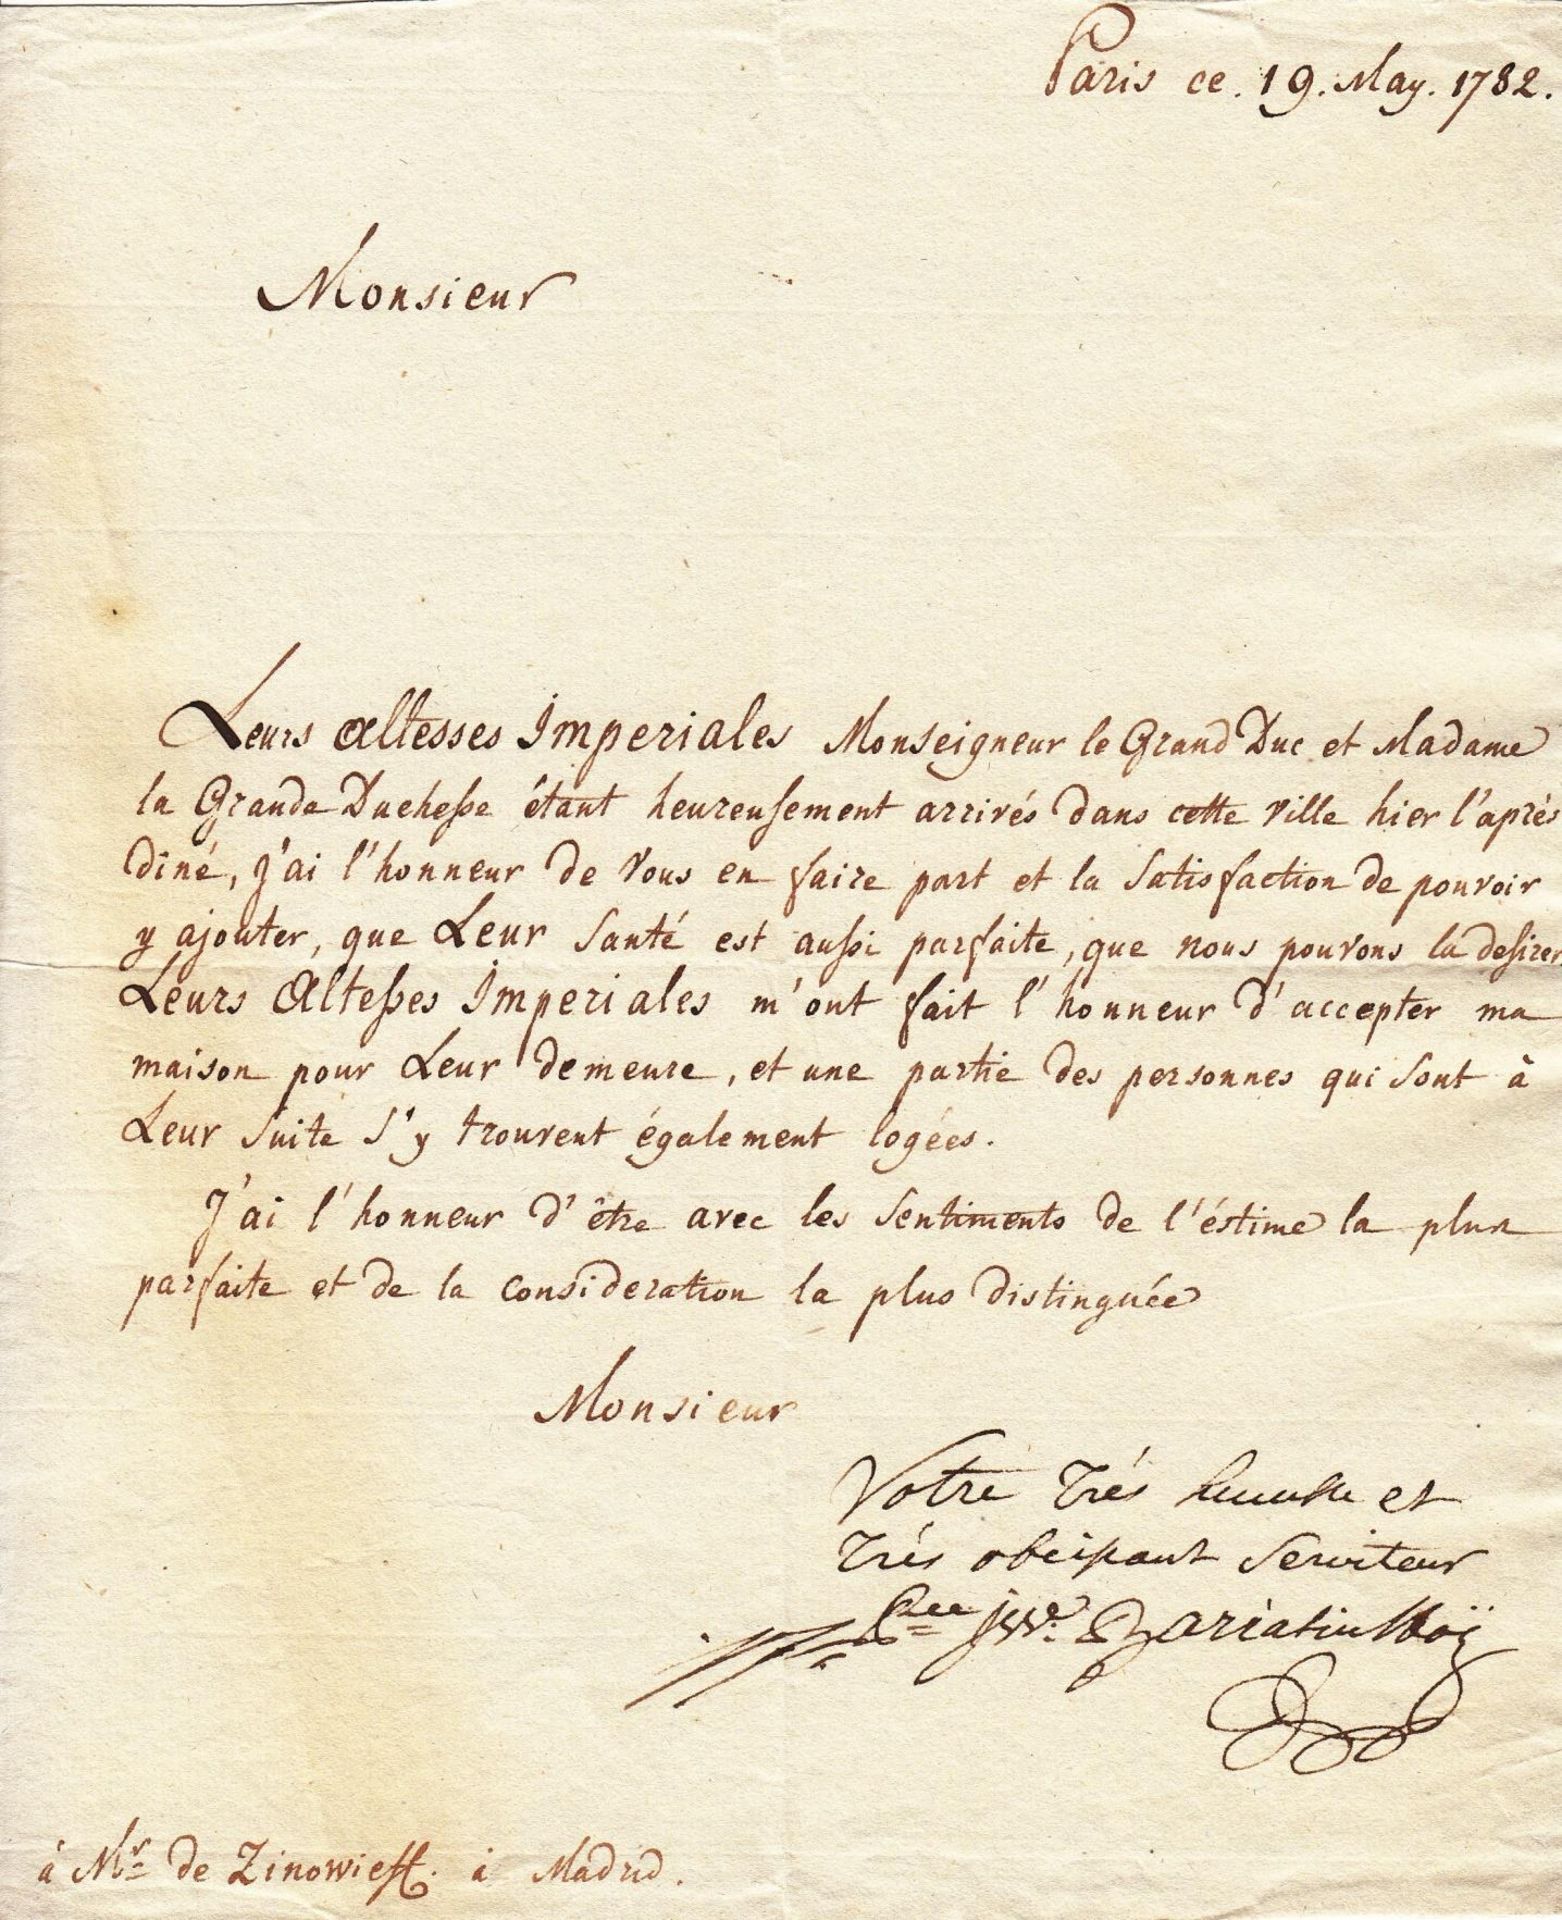 Paris ce. 19. May. 1782.
Monsieur
Leurs Altesses Imperiales Monseigneur le Grand Duc et Madame
la Grande Duchesse êtant heureusement arrivés dans cette ville hier l'aprés
diné, j'ai l'honneur de Vous en faire part et la satisfaction de pouvoir
y ajouter, que Leur santé est aussi parfaite, que nous pouvons la desirer
Leurs Altesses Imperiales m'ont fait l'honneur d'accepter ma
maison pour Leur demeure, et une partie des personnes qui sont à
Leur suite s'y trouvent également logées.
J'ai l'honneur d'être avec les sentiments de l'éstime la plus
parfaite et de la consideration la plus distinguée
Monsieur
Votre trés humble et
trés obeissant serviteur
Pce Iwe: Bariatinskoÿ
à Mr de Zinowieff. à Madrid.